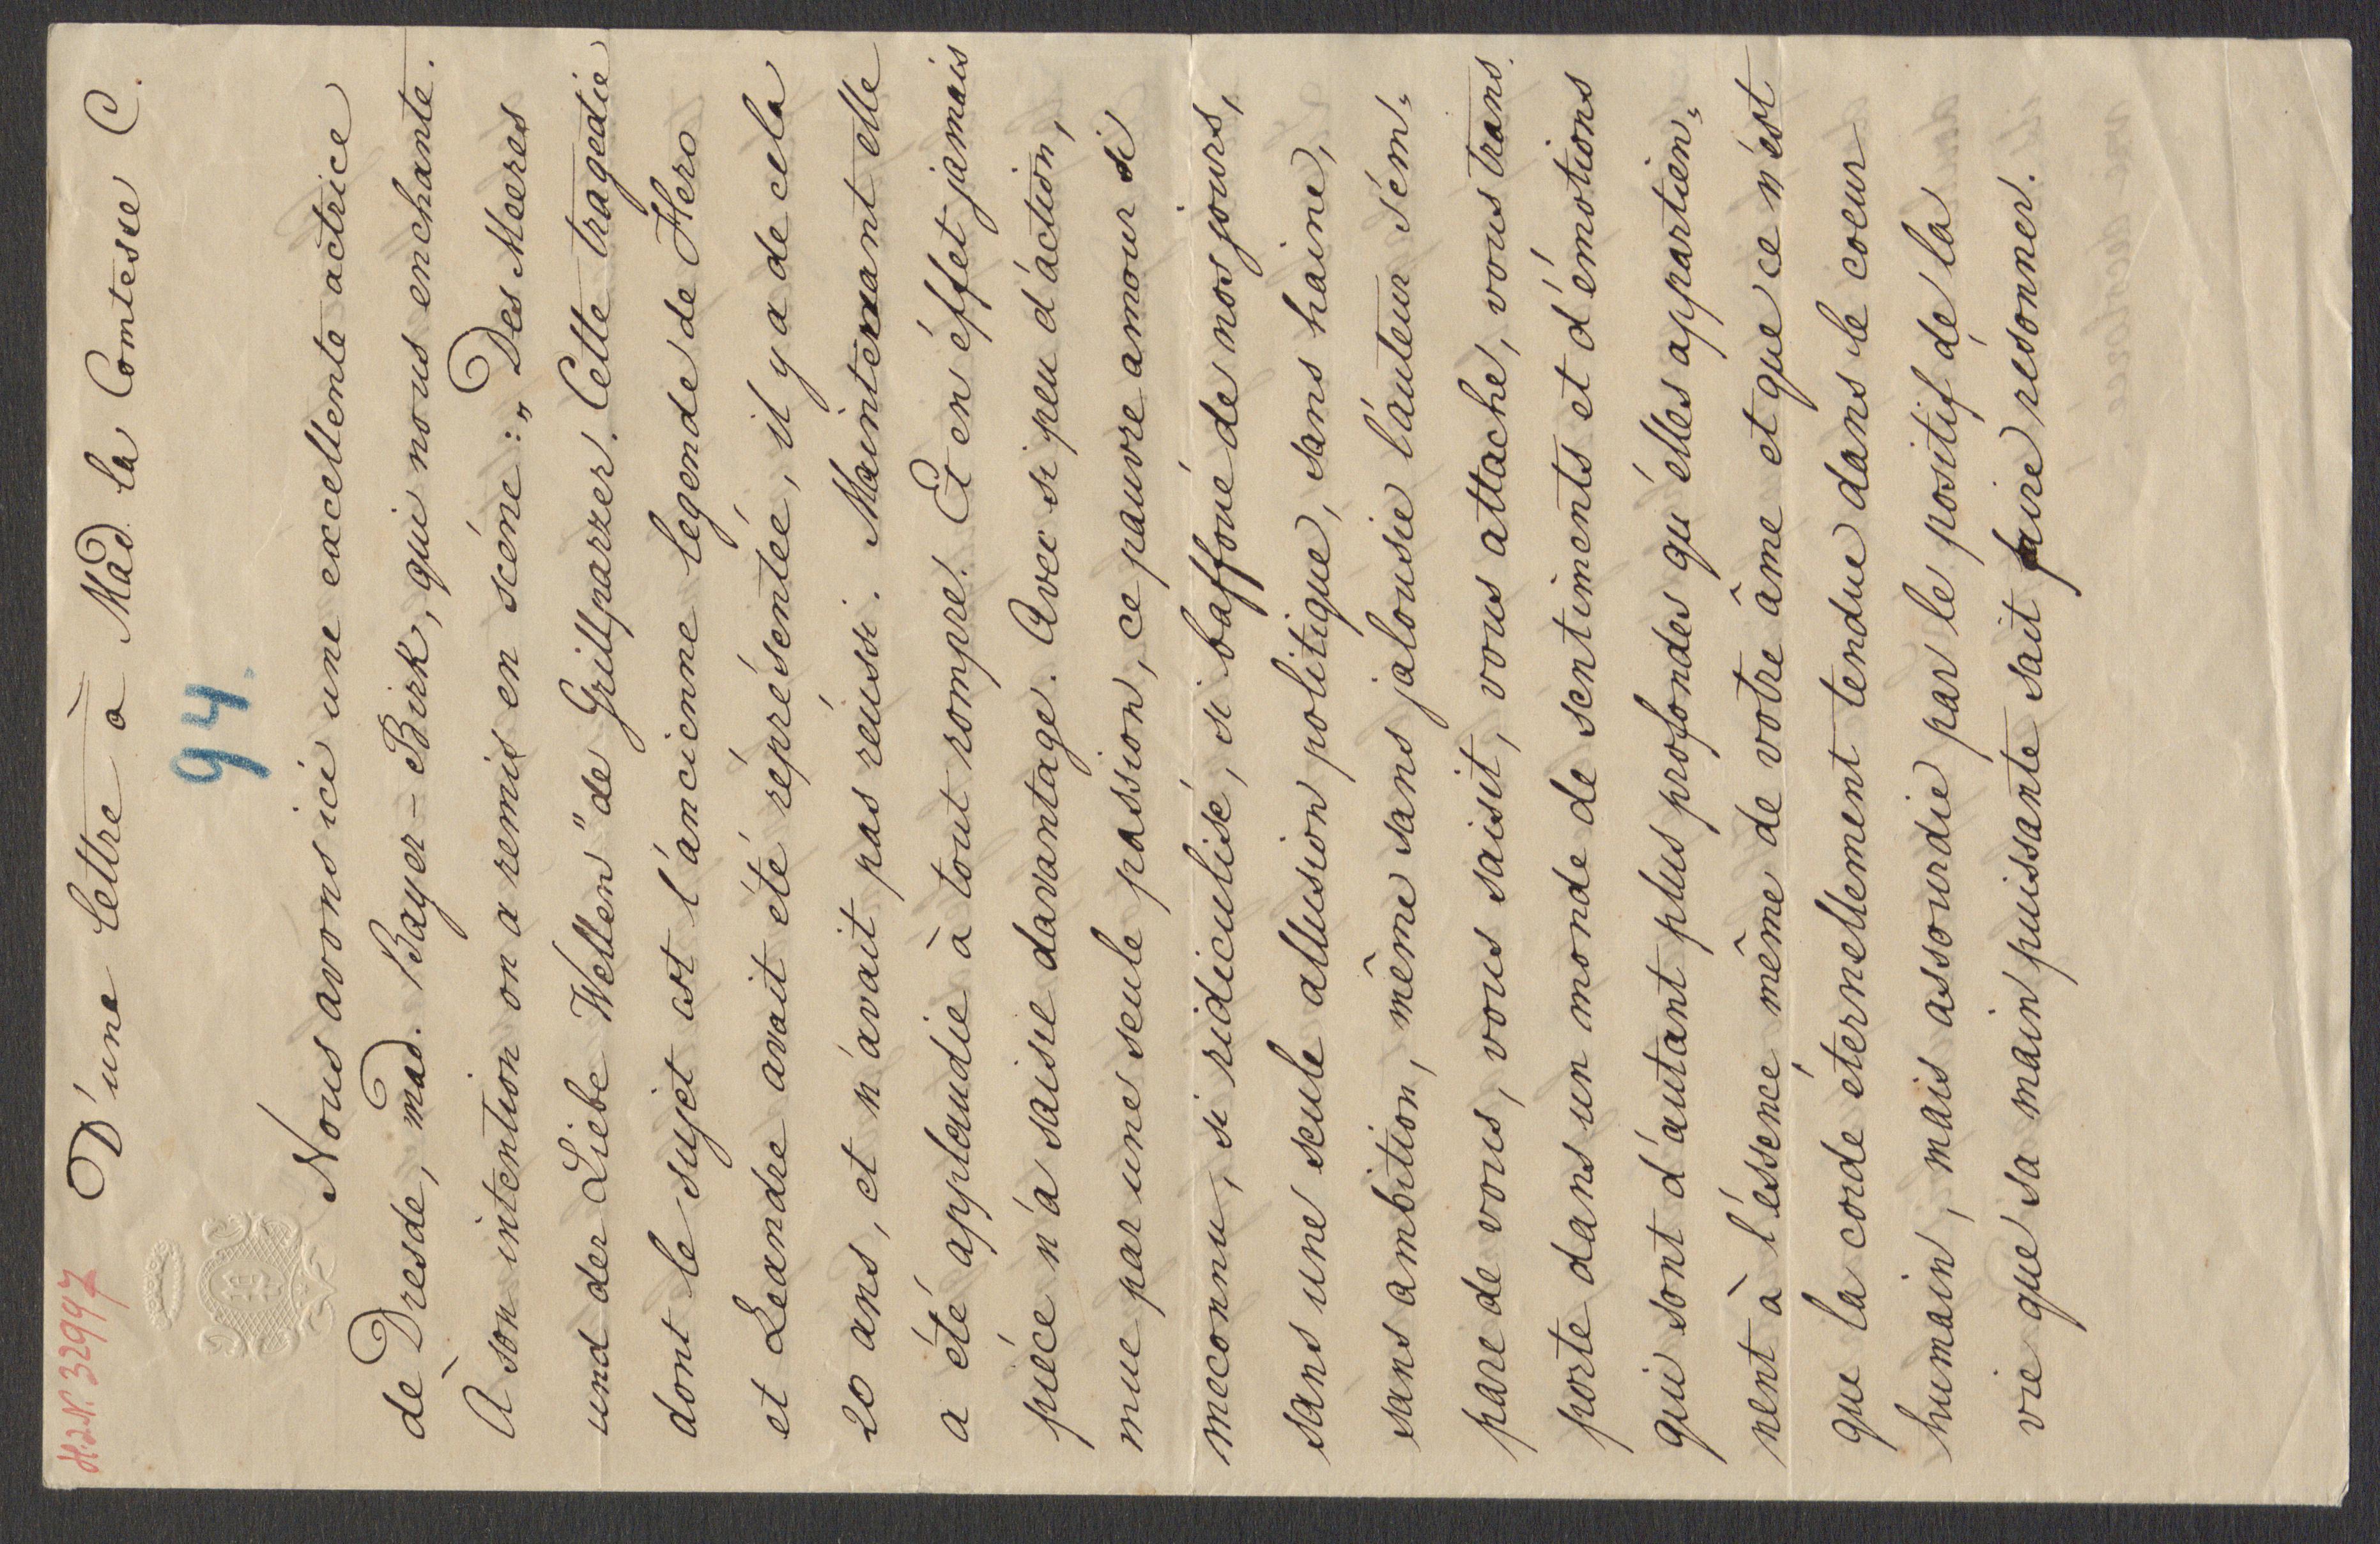 H.I.N. 32997
D'une lettre à Mad la Comtesse C.
94.
Nous avons ici une excellente actrice
de Dresde, mad. Bayer-Birk, qui nous enchante.
À son intention on a remis en scéne: „Des Meeres
und der Liebe Wellen" de Grillparzer. Cette tragedie
dont le sujet est l'áncienne legende de Hero
et Leandre avait été réprésentée, il y a de cela
20 ans, et n'ávait pas réussi. Maintenant elle
a été applaudie à tout rompre. Et en éffet jamais
piéce n'a saisie davantage. Avec si peu d'áction,
mue par une seule passion, ce pauvre amour si
meconnu, si ridiculisé, si baffoué de nos jours,
sans une seule allusion politique, sans haine,
sans ambition, même sans jalousie l'áuteur s'ém„
pare de vous, vous saisit, vous attache, vous trans.
porte dans un monde de sentiments et d'émotions
qui sont d'áutant plus profondes qu'élles appartien„
nent à l'éssence même de votre âme et que ce n'ést
que la corde éternellement tendue dans le coeur
humain, mais assourdie par le positif de la
vie que sa main puissante sait faire resonner.